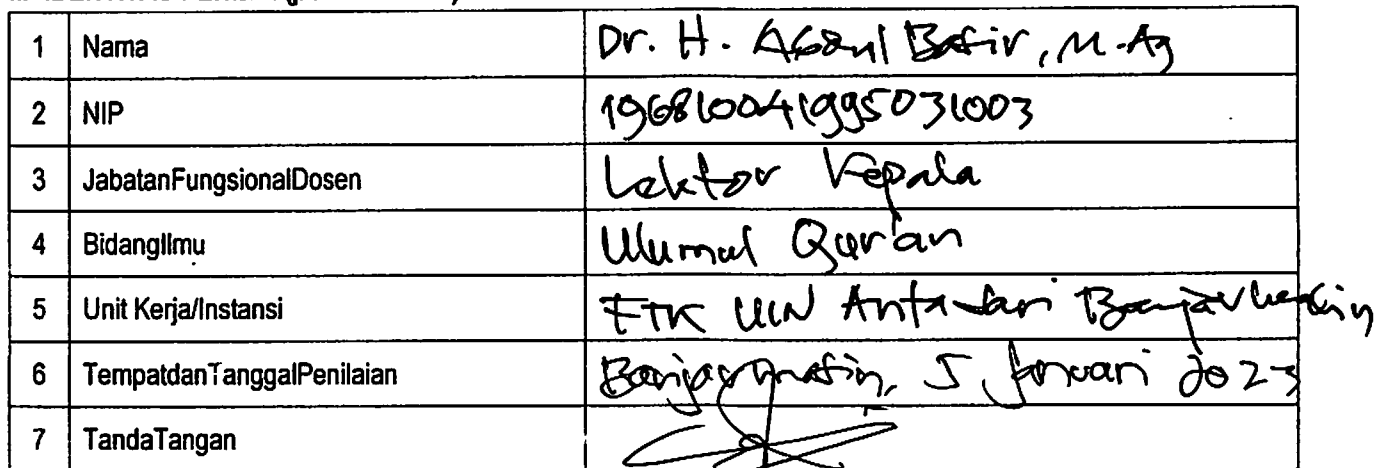 1 Nama Dr. H. Abdul Basir, M.Ag
2 NIP 196810041995031003
3 JabatanFungsionalDosen Lektor Kepala
4 BidangIlmu Ulumul Qur'an
5 Unit Kerja/Instansi FTK UIN Antasari Banjarmasin
6 TempatdanTanggalPenilaian Banjarmasin, 5 Januari 2023
7 TandaTangan